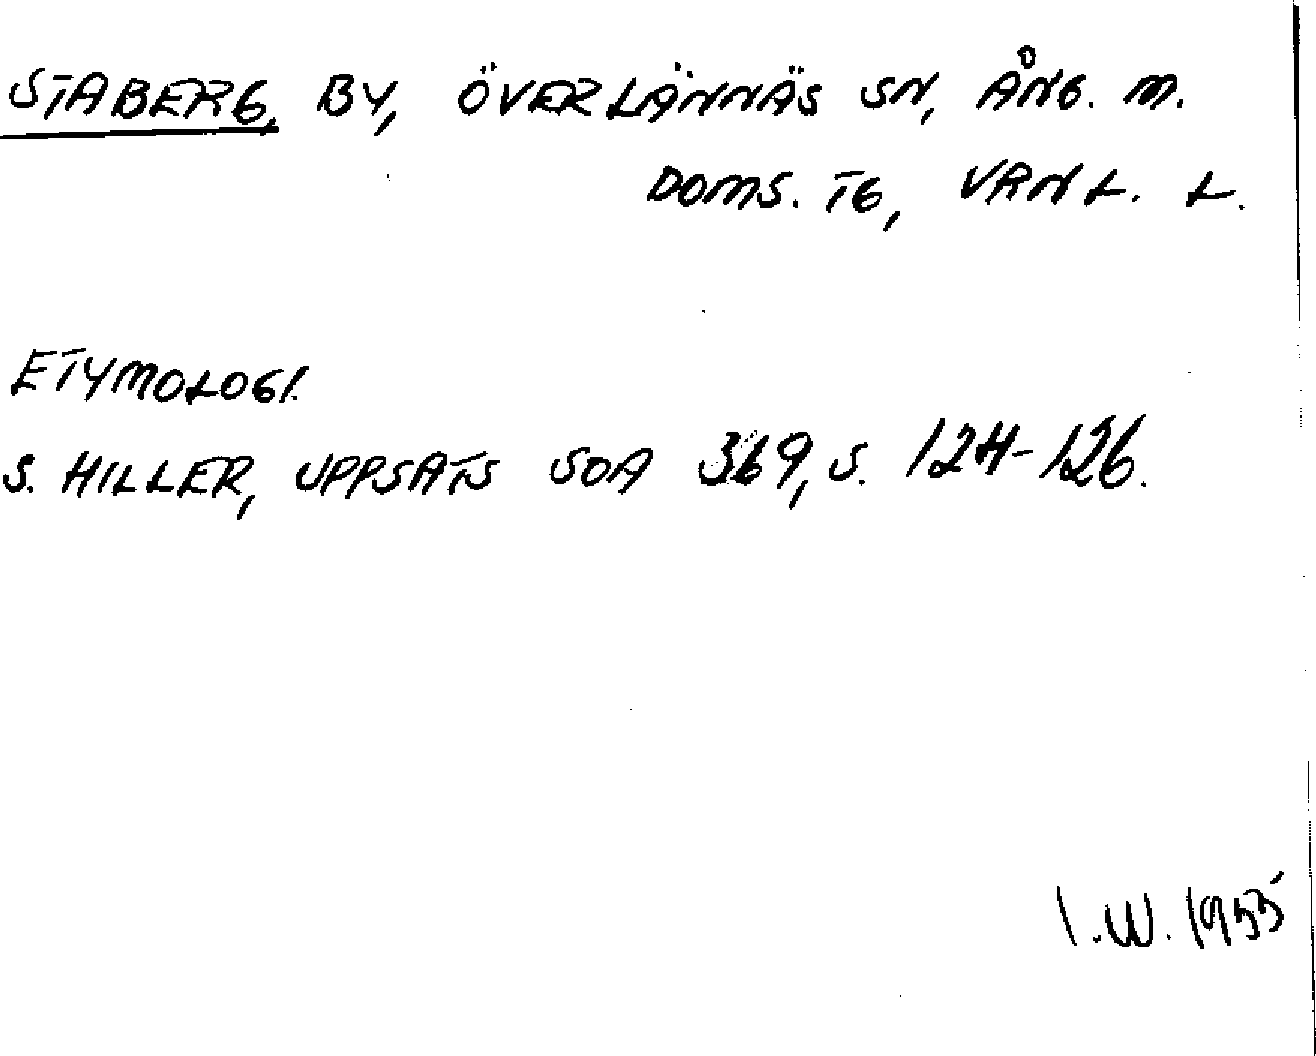 STABERG, BY, ÖVERLÄNNÄS SN, ÅNG. M.
DOMS. TG, VRNL. L.
ETYMOLOGI.
S. HILLER, UPPSATS SOA 369, S. 124-126.
I.W. 1955